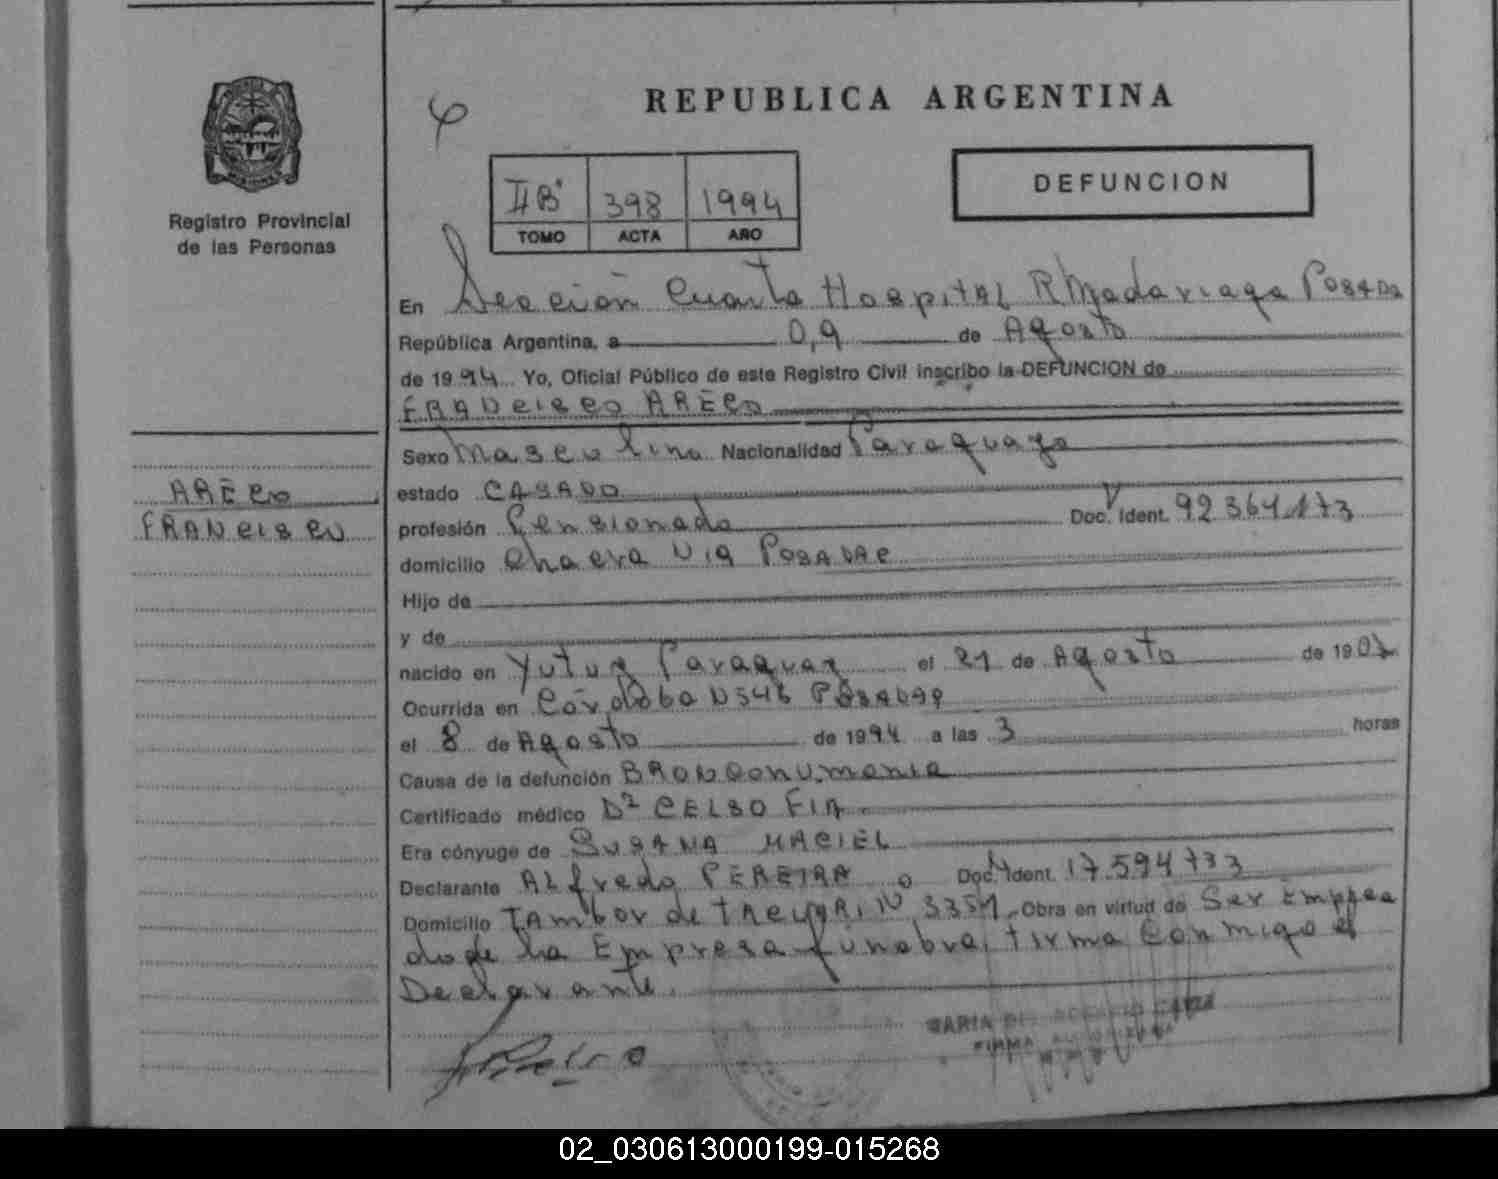 REPUBLICA ARGENTINA
Registro Provincial
de las Personas
IIB 398 1994
TOMO ACTA AÑO
DEFUNCION
En Sección Cuarta Hospital R Madariaga Posadas
República Argentina, a 0,9 de Agosto
de 1994 Yo, Oficial Público de este Registro Civil inscribo la DEFUNCION de
FRANCISCO ARECO
Sexo Masculino Nacionalidad Paraguaya
ARECO
FRANCISCO
estado CASADO
profesión Pensionado Doc. Ident. 92364173
domicilio Chacra Posadas
Hijo de
y de
nacido en Yutuy Paraguay el 21 de Agosto de 190
Ocurrida en Córdoba Posadas
el 8 de Agosto de 1994 a las 3 horas
Causa de la defunción Bronconumonia
Certificado médico Dr CELSO FIA
Era cónyuge de SUSANA MACIEL
Declarante Alfredo PEREIRA Doc. Ident. 17.594733
Domicilio Tambor de Tacuari N 3351 Obra en virtud de Ser Emplea
do de la Empresa funebre, firma Conmigo el
Declarante.
02_030613000199-015268